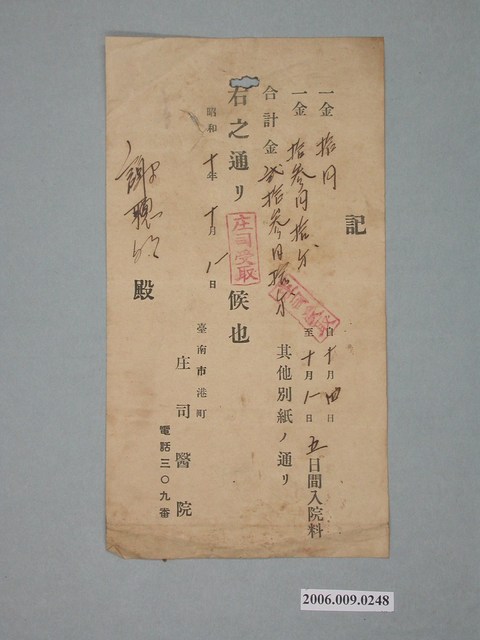 記
一金 拾円
自十月四日
至十月八日 五日間入院料
一金 拾参円拾六
其他別紙ノ通リ
合計金 弐拾参円拾六
右之通リ候也
庄司受取
昭和十年十月八日
臺南市港町
庄司醫院
電話三〇九番
殿
2006.009.0248